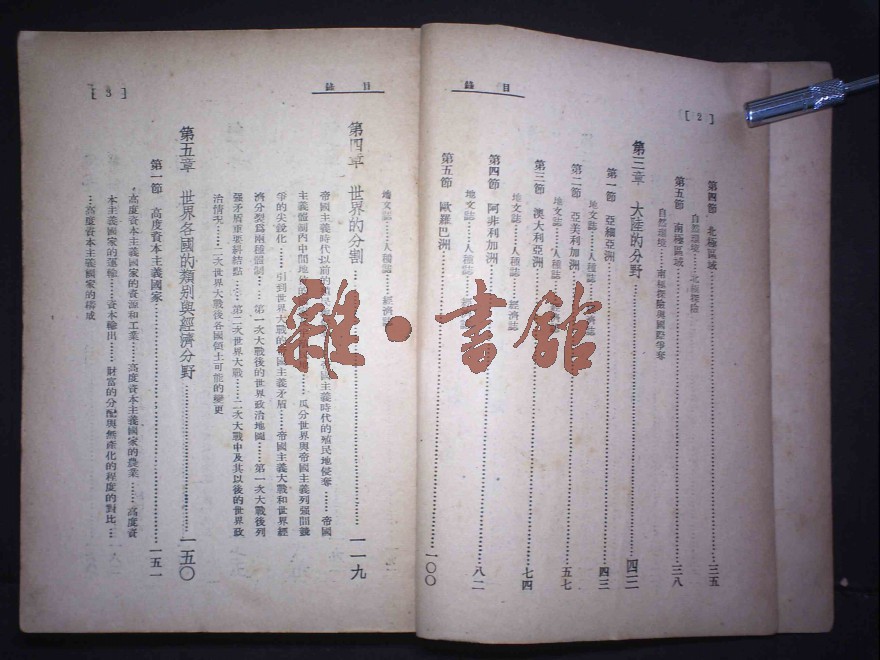 目錄
[2]
第四節 北極區域……三五
自然環境……北極探險
第五節 南極區域……三八
自然環境……南極探險與國際爭奪
第三章 大陸的分野……四二
第一節 亞細亞洲……四三
地文誌……人種誌……經濟誌
第二節 亞美利加洲……五七
地文誌……人種誌……經濟誌
第三節 澳大利亞洲……七四
地文誌……人種誌……經濟誌
第四節 阿非利加洲……八二
地文誌……人種誌……經濟誌
第五節 歐羅巴洲……一〇〇
目錄
[3]
地文誌……人種誌……經濟誌
第四章 世界的分割……一一九
帝國主義時代以前的殖民 國主義時代的殖民地侵奪……帝國
主義體制內中間地位的 瓜分世界與帝國主義列強間鬪
爭的尖銳化……引到世界大戰的帝國主義矛盾……帝國主義大戰和世界經
濟分裂爲兩種體制……第一次大戰後的世界政治地圖……第一次大戰後列
強矛盾重要終結點……第二次世界大戰……二次大戰中及其以後的世界政
治情况……二次世界大戰後各國領土可能的變更
第五章 世界各國的類别與經濟分野……一五〇
第一節 高度資本主義國家……一五一
高度資本主義國家的資源和工業……高度資本主義國家的農業……高度資
本主義國家的運輸……資本輸出……財富的分配與無產化的程度的對比…
…高度資本主義國家的構成
雜·書館